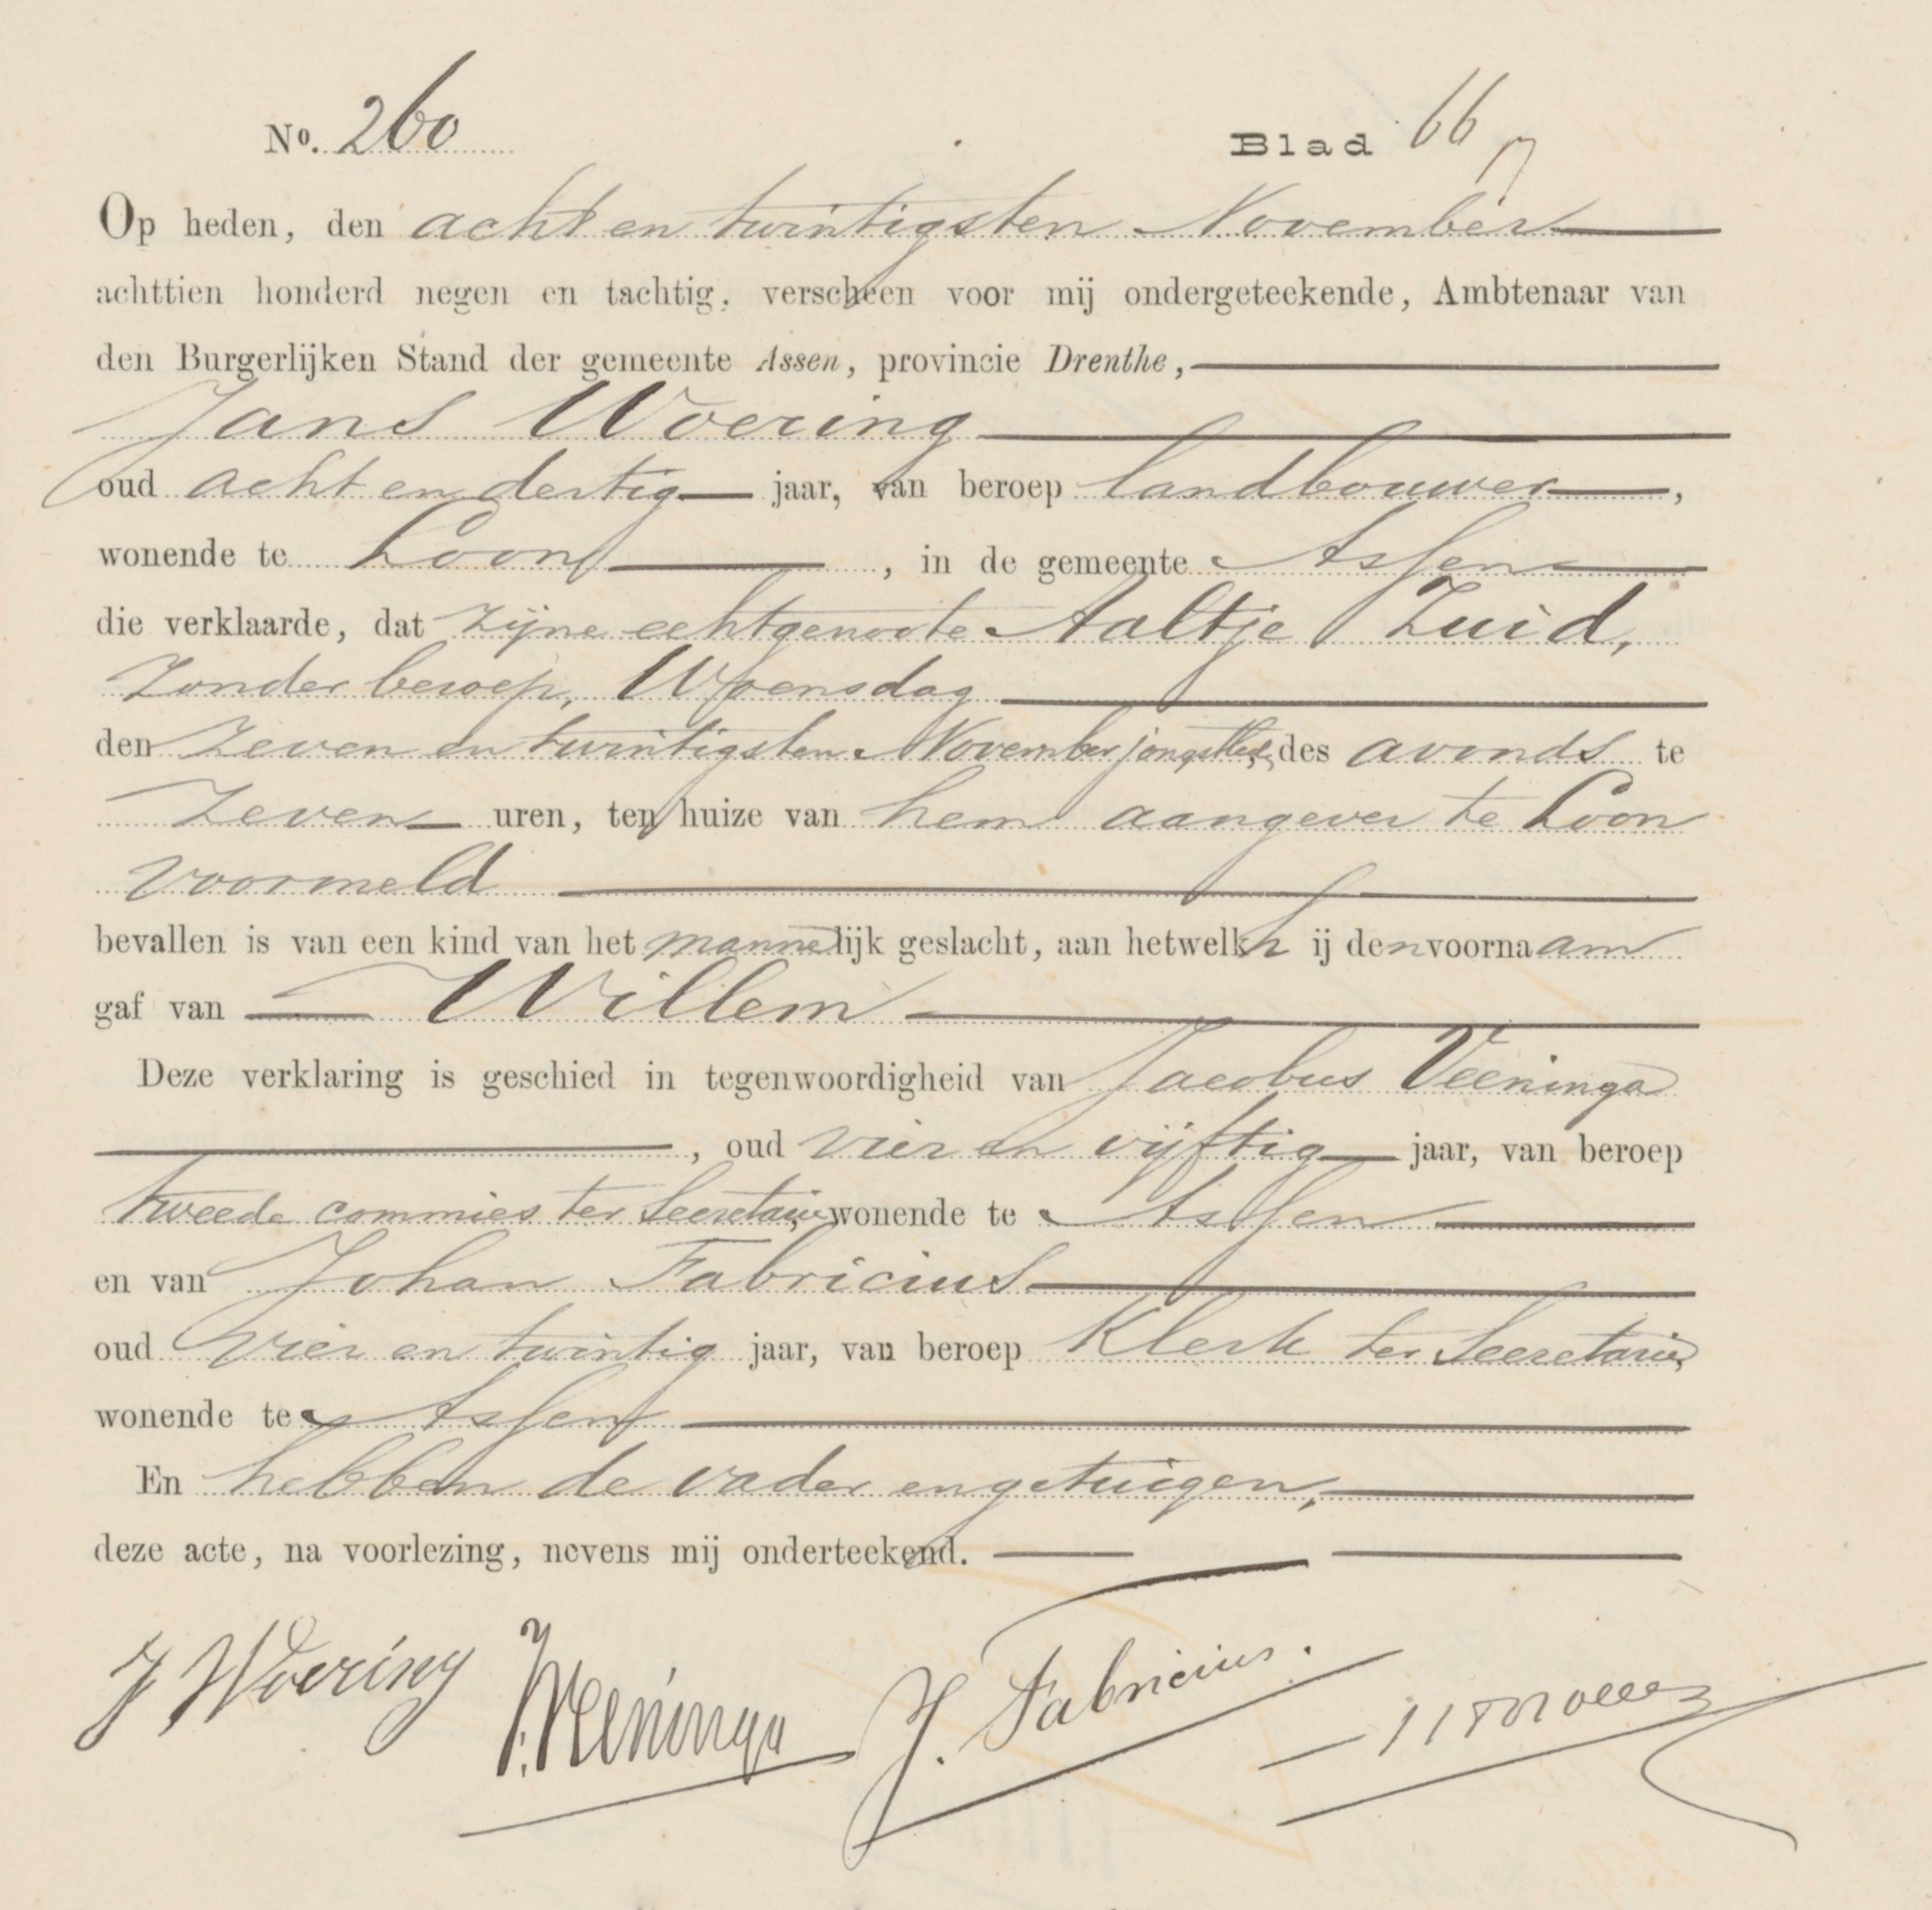 No. 260 Blad 66
Op heden, den acht en twintigsten November
achttien honderd negen en tachtig, verscheen voor mij ondergeteekende, Ambtenaar van
den Burgerlijken Stand der gemeente Assen, provincie Drenthe,
Jans Woering
oud acht en dertig jaar, van beroep landbouwer,
wonende te Loon, in de gemeente Assen
die verklaarde, dat zijne echtgenoote Aaltje Zuid,
zonder beroep, Woensdag
den zeven en twintigsten November jongstled., des avonds te
zeven uren, ten huize van hem aangever te Loon
voormeld
bevallen is van een kind van het mannelijk geslacht, aan hetwelk hij den voornaam
gaf van Willem
Deze verklaring is geschied in tegenwoordigheid van Jacobus Veeninga
, oud vier en vijftig jaar, van beroep
tweede commies ter Secretarie, wonende te Assen
en van Johan Fabricius
oud vier en twintig jaar, van beroep Klerk ter Secretarie,
wonende te Assen
En hebben de vader en getuigen,
deze acte, na voorlezing, nevens mij onderteekend.
J Woering J. Veeninga J. Fabricius.